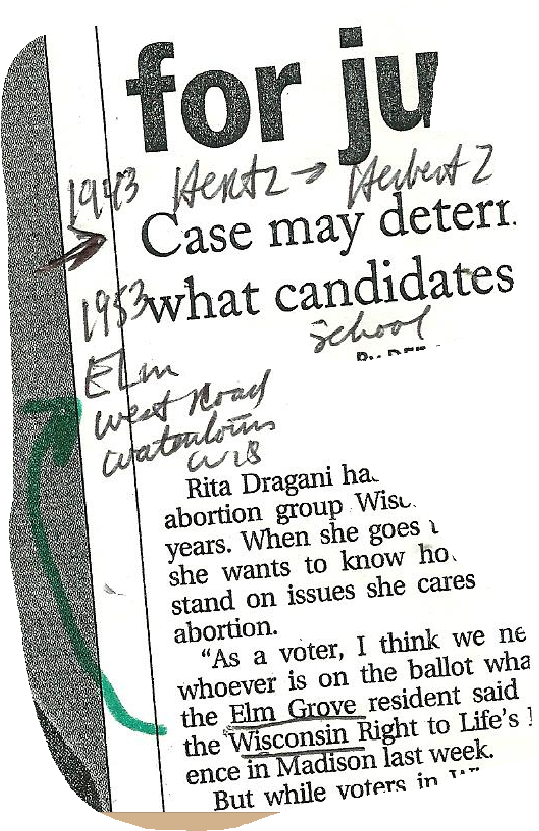 for ju
1943 Hertz → Herbert Z
Case may deterr
1953 what candidates
School
Elm
West Road
Watertown
WIS
Rita Dragani ha
abortion group Wisc
years. When she goes
she wants to know ho
stand on issues she cares
abortion.
"As a voter, I think we ne
whoever is on the ballot wha
the Elm Grove resident said
the Wisconsin Right to Life's
ence in Madison last week.
But while voters in